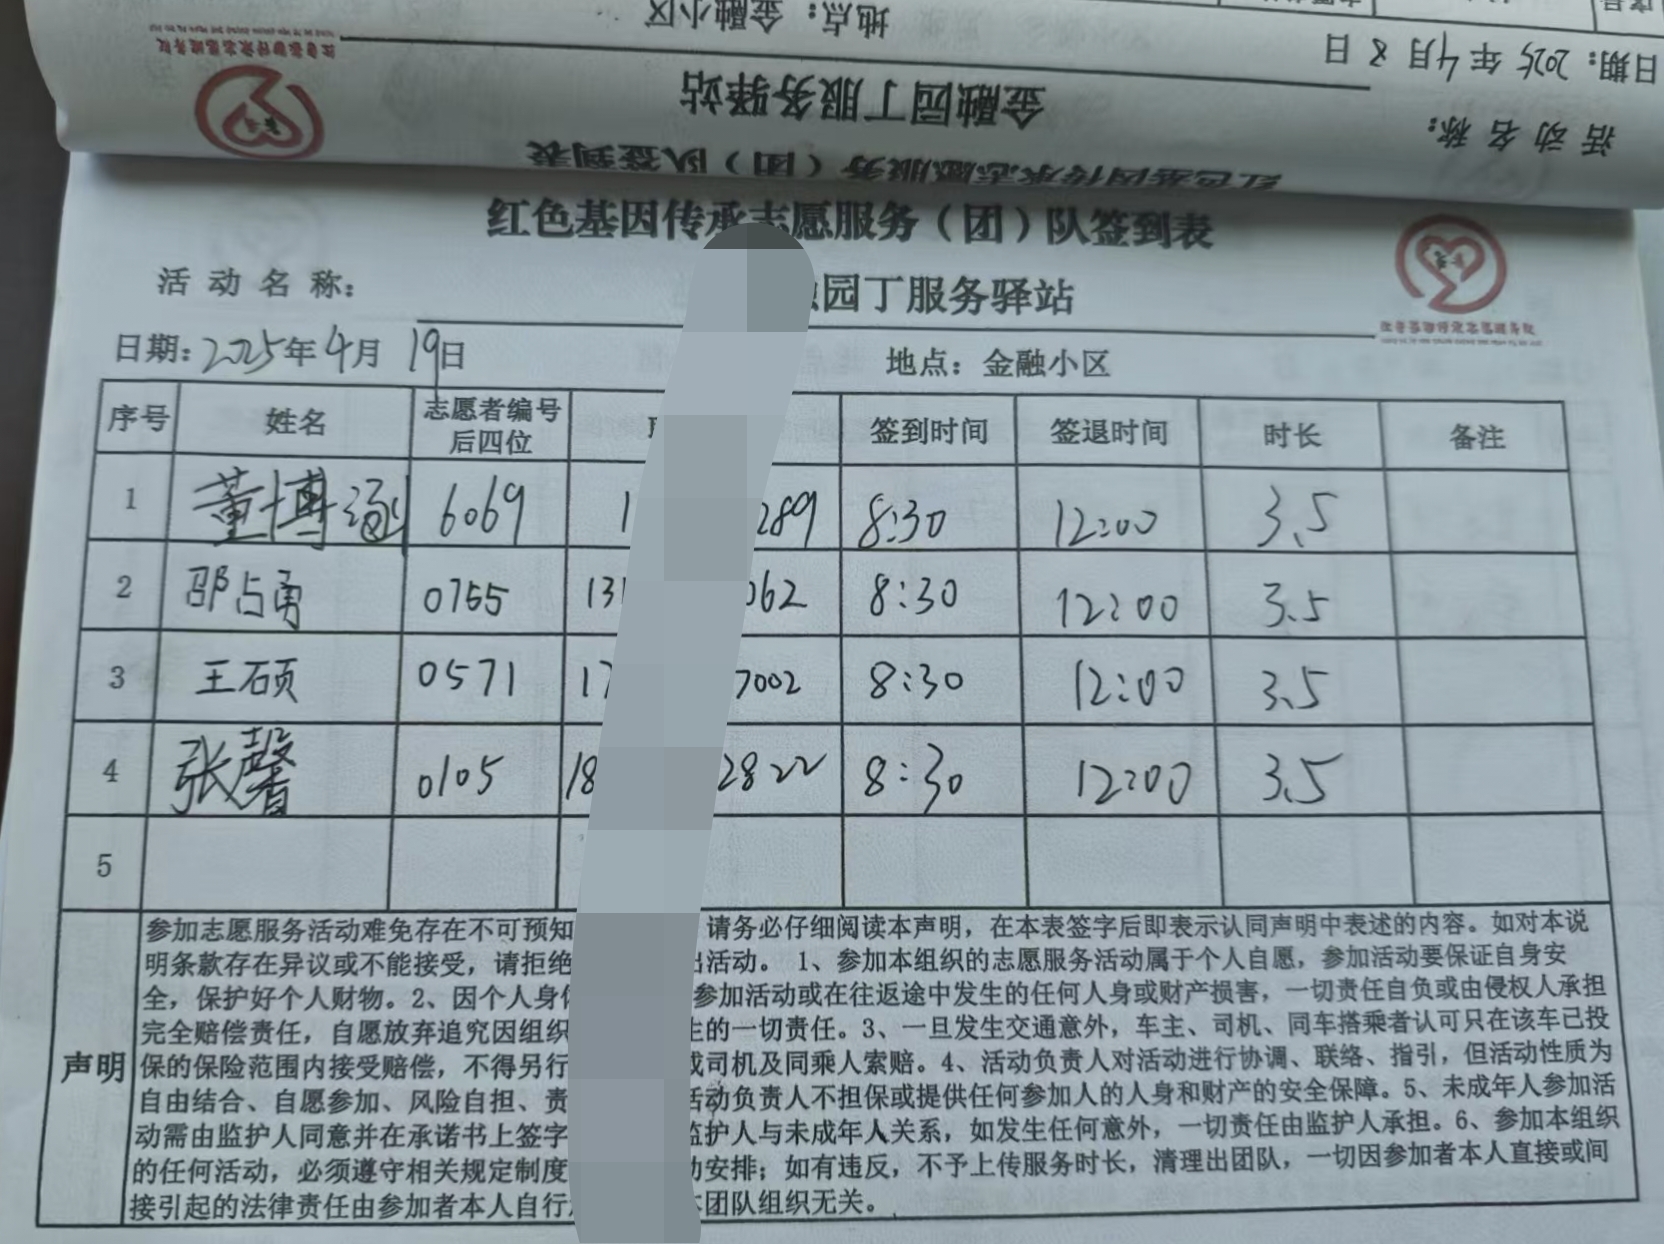 地点：金融小区
日期：2025年4月8日
金融园丁服务驿站
活动名称：
红色基因传承志愿服务（团）队签到表
红色基因传承志愿服务（团）队签到表
活动名称：
园丁服务驿站
日期：2025年4月19日
地点：金融小区
序号 姓名 志愿者编号后四位 签到时间 签退时间 时长 备注
1 董博涵 6069 1 289 8:30 12:00 3.5
2 邵占勇 0755 131 062 8:30 12:00 3.5
3 王硕 0571 17 7002 8:30 12:00 3.5
4 张馨 0105 18 2822 8:30 12:00 3.5
5
声明
参加志愿服务活动难免存在不可预知 请务必仔细阅读本声明，在本表签字后即表示认同声明中表述的内容。如对本说
明条款存在异议或不能接受，请拒绝 出活动。1、参加本组织的志愿服务活动属于个人自愿，参加活动要保证自身安
全，保护好个人财物。2、因个人身体 参加活动或在往返途中发生的任何人身或财产损害，一切责任自负或由侵权人承担
完全赔偿责任，自愿放弃追究因组织 生的一切责任。3、一旦发生交通意外，车主、司机、同车搭乘者认可只在该车已投
保的保险范围内接受赔偿，不得另行 或司机及同乘人索赔。4、活动负责人对活动进行协调、联络、指引，但活动性质为
自由结合、自愿参加、风险自担、责 活动负责人不担保或提供任何参加人的人身和财产的安全保障。5、未成年人参加活
动需由监护人同意并在承诺书上签字 监护人与未成年人关系，如发生任何意外，一切责任由监护人承担。6、参加本组织
的任何活动，必须遵守相关规定制度 动安排；如有违反，不予上传服务时长，清理出团队，一切因参加者本人直接或间
接引起的法律责任由参加者本人自行 本团队组织无关。